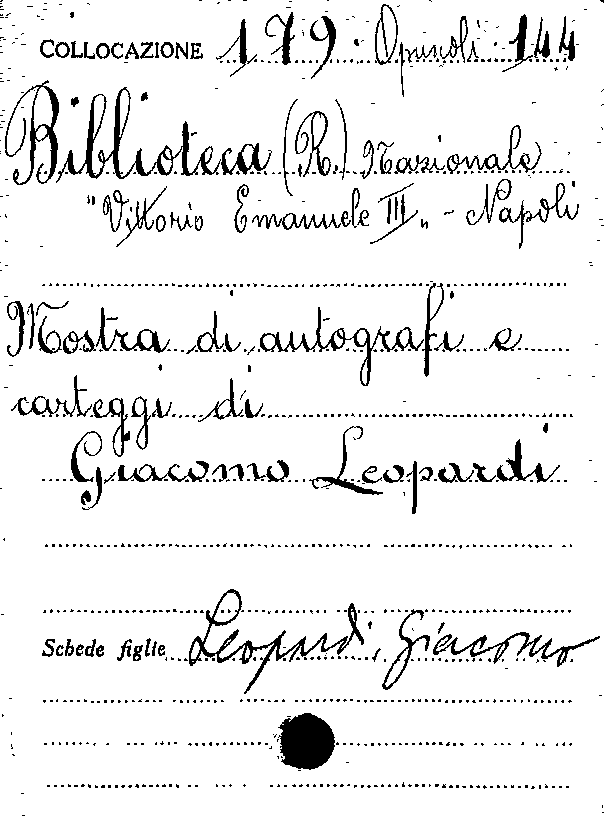 COLLOCAZIONE 179. Opuscoli 144
Biblioteca (R.) Nazionale
"Vittorio Emanuele III" - Napoli
Mostra di autografi e
carteggi di
Giacomo Leopardi
Schede figlie Leopardi, Giacomo